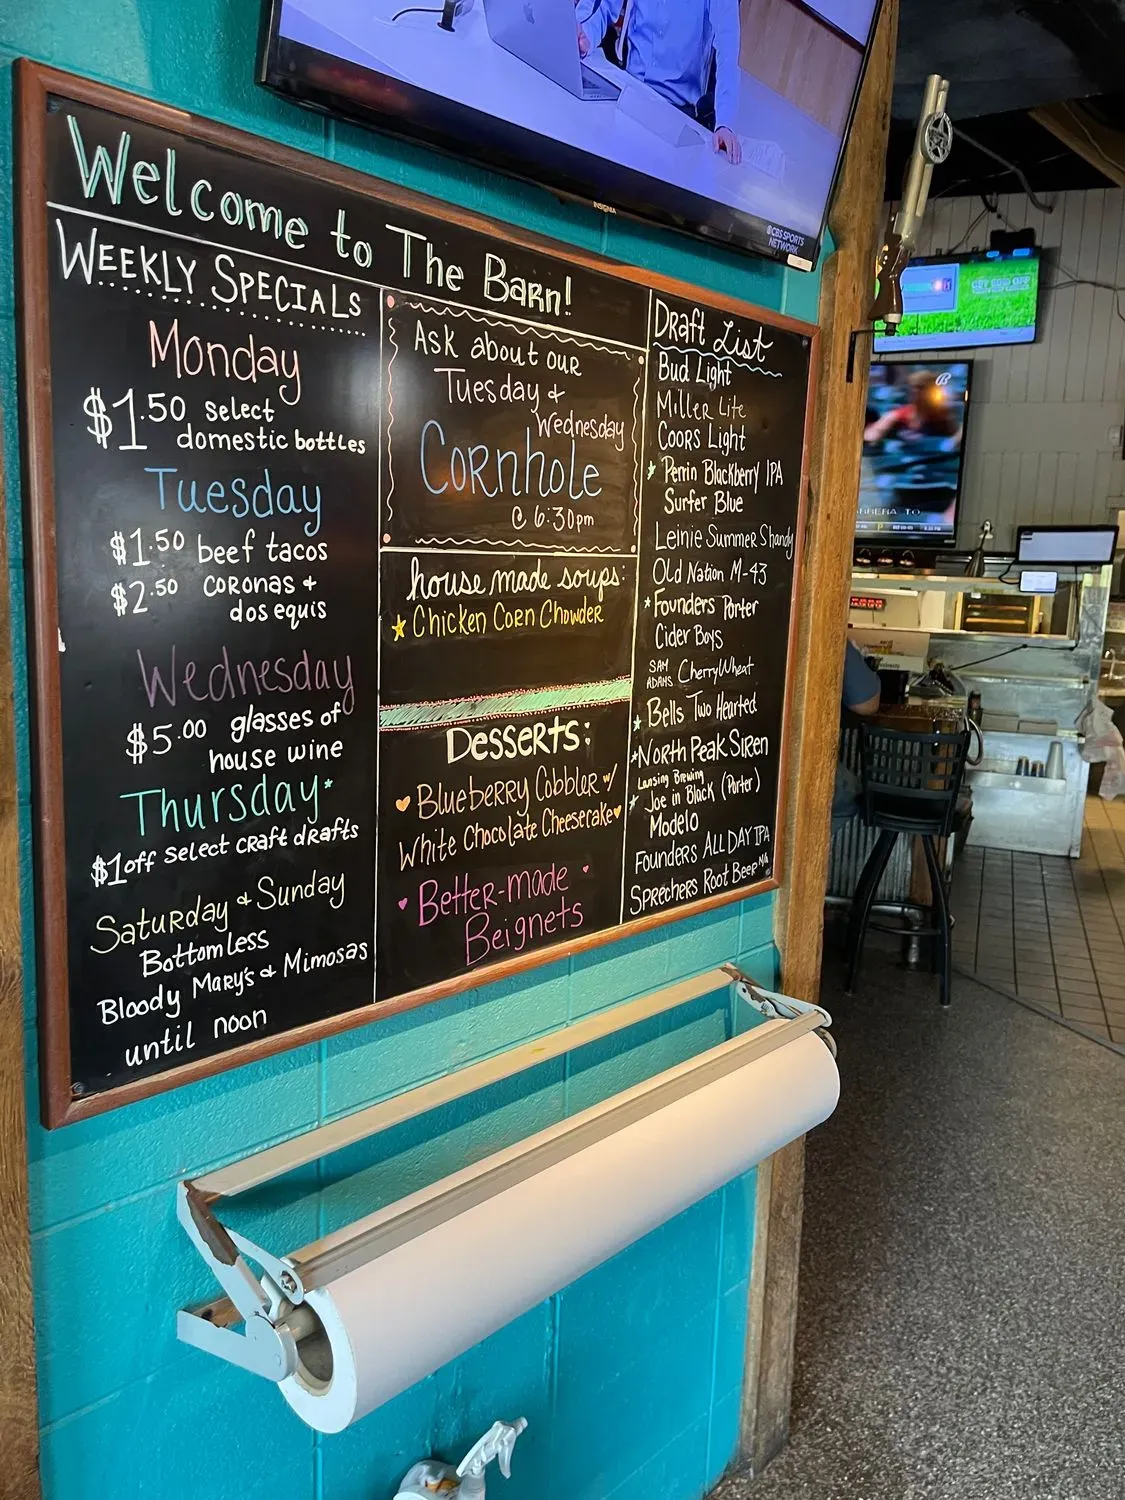 Welcome to The Barn!
WEEKLY SPECIALS
Monday
$1.50 select
domestic bottles
Tuesday
$1.50 beef tacos
$2.50 coronas +
dos equis
Wednesday
$5.00 glasses of
house wine
Thursday*
$1 off select craft drafts
Saturday & Sunday
Bottomless
Bloody Mary's & Mimosas
until noon
Ask about our
Tuesday &
Wednesday
Cornhole
@ 6:30pm
house made soups:
Chicken Corn Chowder
Desserts:
Blueberry Cobbler w/
White Chocolate Cheesecake
Better-made
Beignets
Draft List
Bud Light
Miller Lite
Coors Light
* Perrin Blackberry IPA
Surfer Blue
Leinie Summer Shandy
Old Nation M-43
* Founders Porter
Cider Boys
SAM ADAMS Cherry Wheat
* Bells Two Hearted
* North Peak Siren
Lansing Brewing
* Joe in Black (Porter)
Modelo
Founders ALL DAY IPA
Sprechers Root Beer NA
INSIGNIA
CBS SPORTS
NETWORK